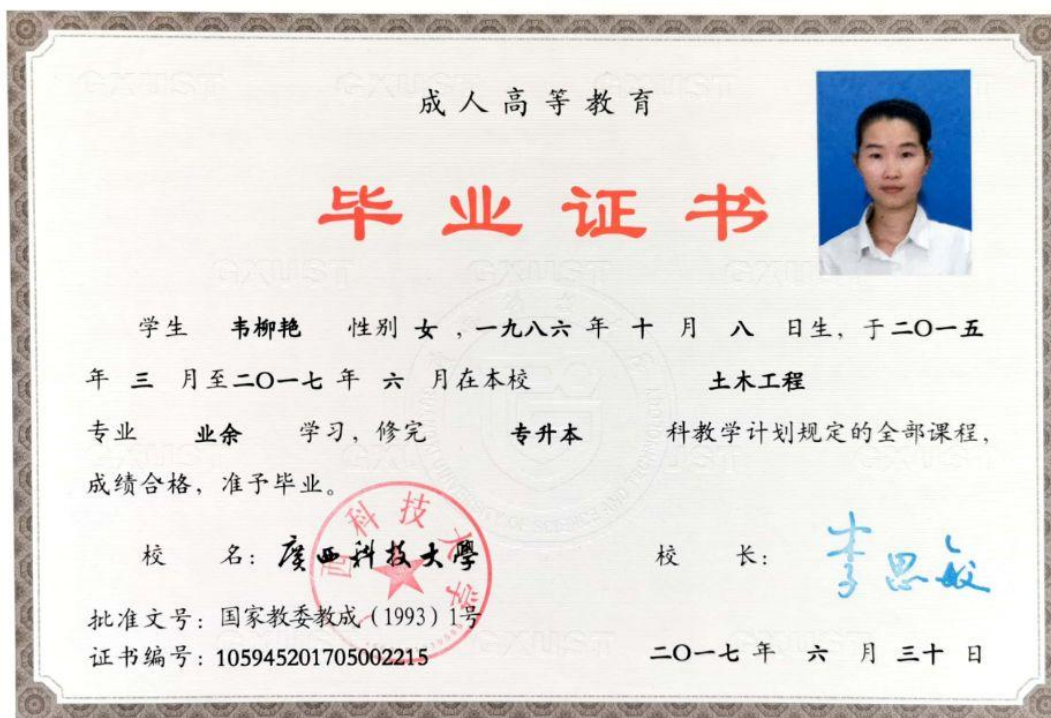 成人高等教育
毕业证书
学生 韦柳艳 性别 女 , 一九八六 年 十 月 八 日生, 于二〇一五
年 三 月至二〇一七 年 六 月在本校 土木工程
专业 业余 学习, 修完 专升本 科教学计划规定的全部课程,
成绩合格, 准予毕业。
校 名: 广西科技大学
校 长: 李思敏
批准文号: 国家教委教成 (1993) 1号
证书编号: 105945201705002215
二〇一七 年 六 月 三十 日
GXUST